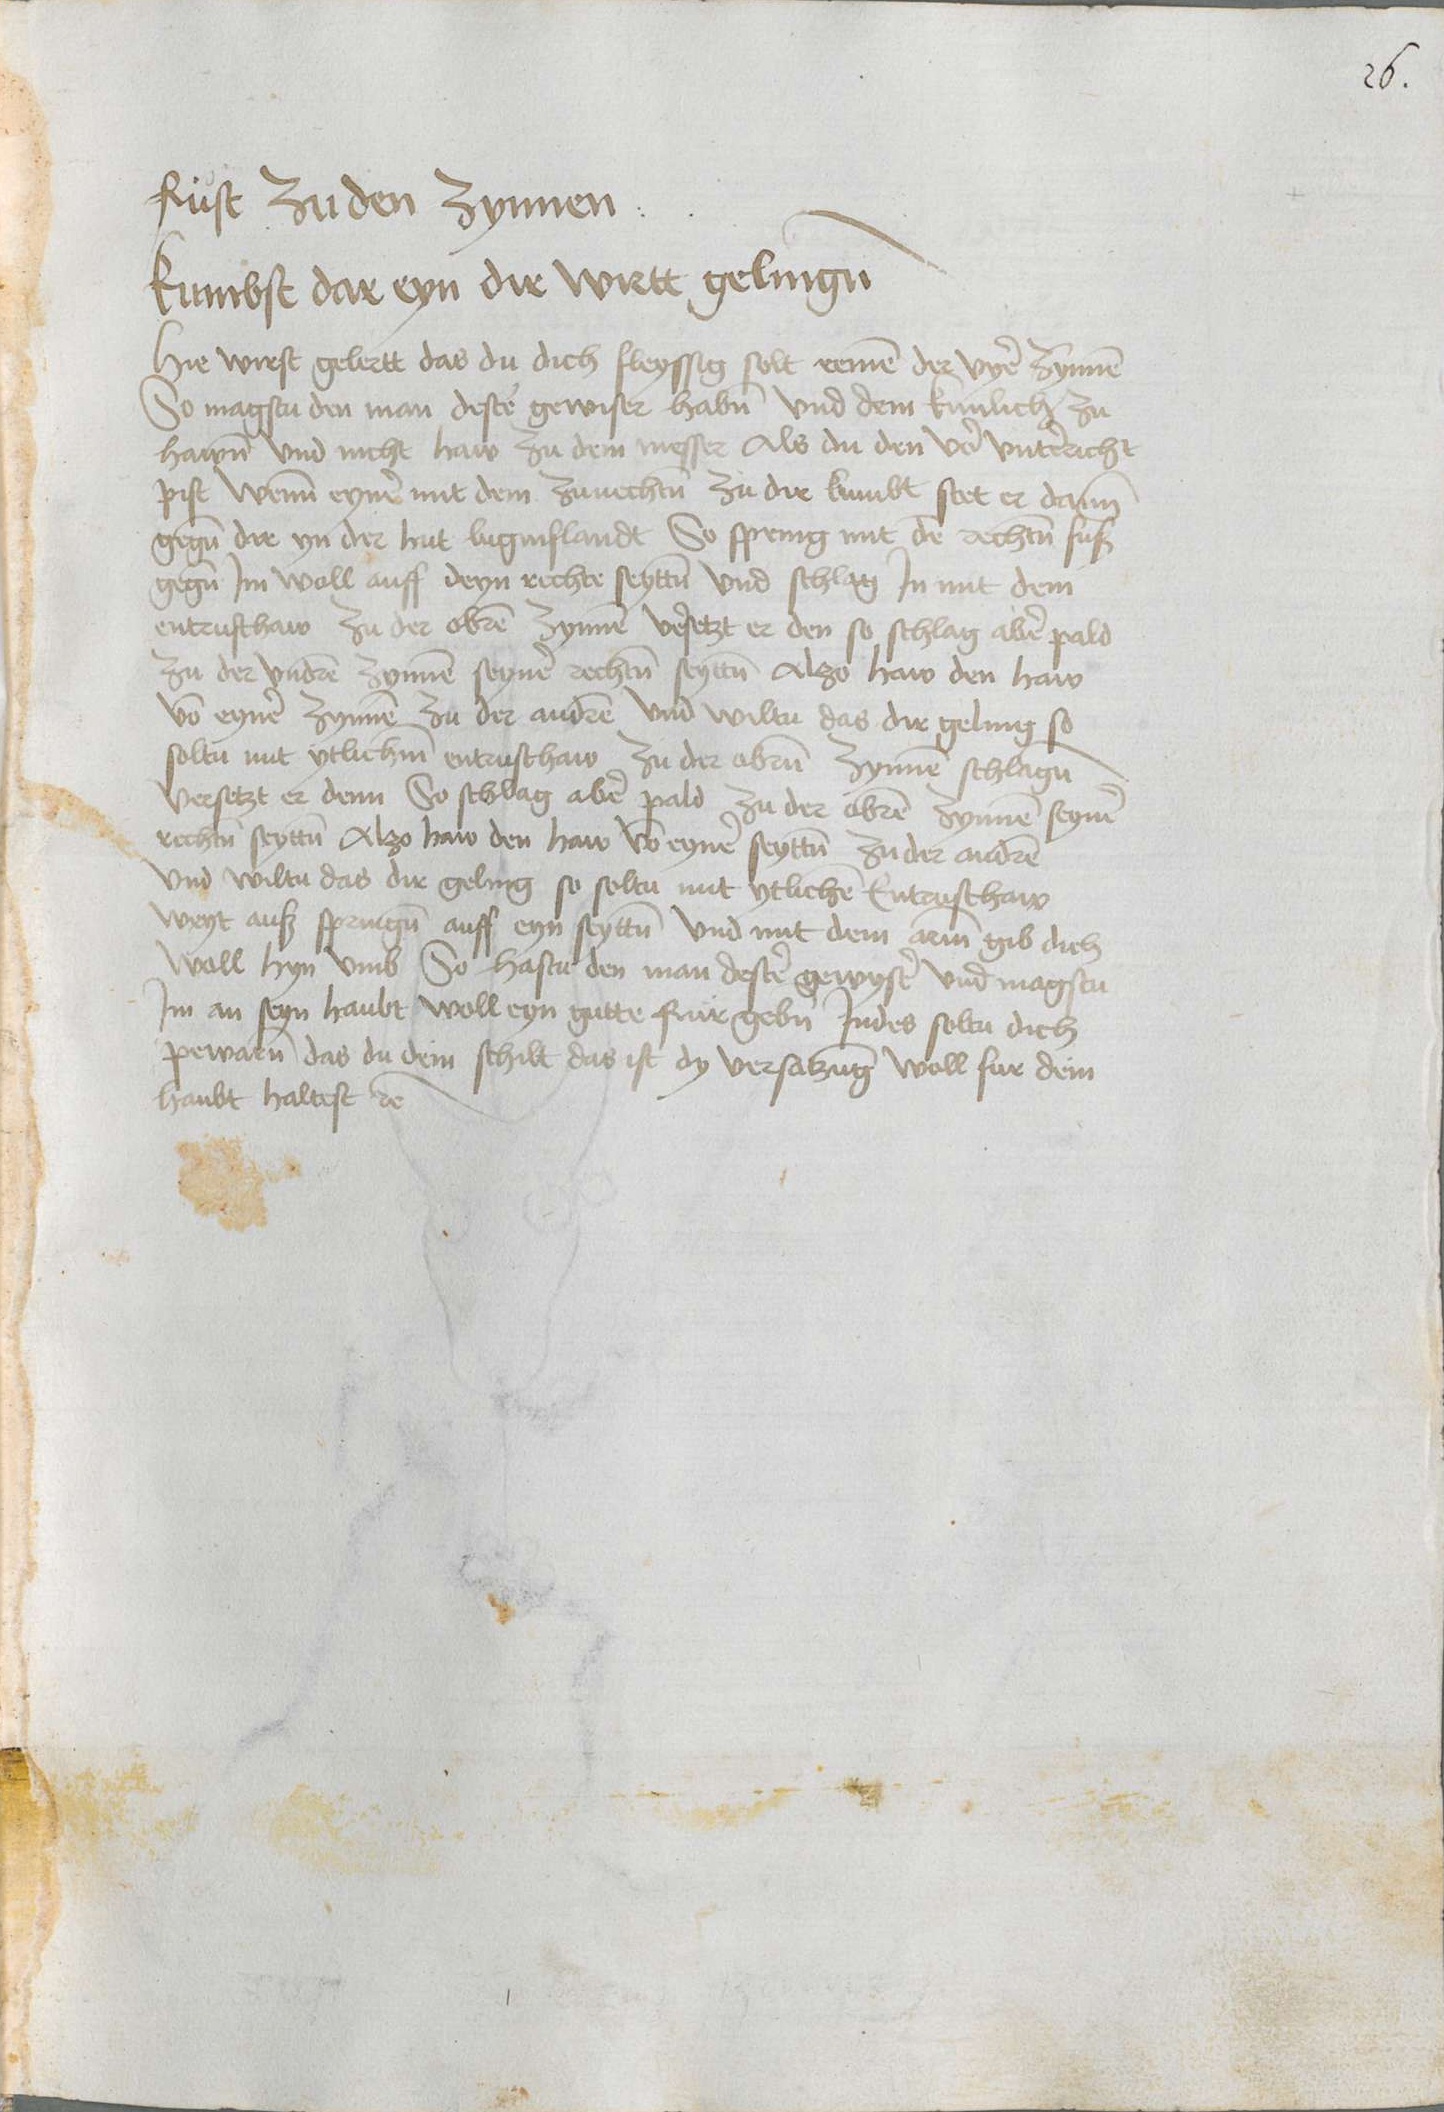 26.
Rüst zu den zynnen
kumbst dar eyn dir wirtt gelingn̄
Hie wirst gelertt das du dich fleyssig solt remē der vyr̄ zynnē
So magstu den man deste gewiser habn̄ vnd dem kunlich zu
hawn̄ vnd nicht haw zu dem messer Als du den vor̄ vnterricht
pist Wenn̄ eyner̄ mit dem zuuechtn̄ zu dir kumbt stet er dann̄
gegn̄ dir yn der hut luginslandt So spring mit dē rechtn̄ fuß
gegn̄ Im woll auff deyn rechte seyttn̄ vnd schlag In mit dem
entrusthaw zu der obrē zynnē vesetzt er den so schlag aber̄ pald
zu der vndrē zynnē seyner̄ rechtn̄ seyttn̄ Alzo haw den haw
vō eyner̄ zynnē zu der andrē vnd wiltu das dir geling so
soltu mit ytlichm̄ entrusthaw zu der obrn̄ zynnē schlagn̄
versetzt er denn So schlag aber̄ pald zu der obrē zynnē seyner̄
rechtn̄ seyttn̄ Alzo haw den haw vō eyner̄ seyttn̄ zu der andrē
vnd wiltu das dir geling so soltu mit ytlichē Entrusthaw
weyt auß springn̄ auff eyn seyttn̄ vnd mit dem arm̄ gib dich
woll hyn vmb So hastu den man dester̄ gewyser̄ vnd magstu
Im an seyn haubt woll eyn gutte fur gebn̄ Indes soltu dich
pewarn̄ das du dein schilt das ist dy versatzūg woll fur dein
haubt haltest